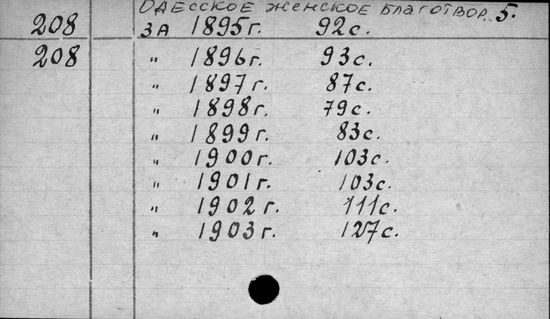 Одесское женское благотвор. 5.
208 за 1895г. 92с.
208 " 1896г. 93с.
" 1897г. 87с.
" 1898г. 79с.
" 1899г. 83с.
" 1900г. 103с.
" 1901г. 103с.
" 1902г. 111с.
" 1903г. 127с.